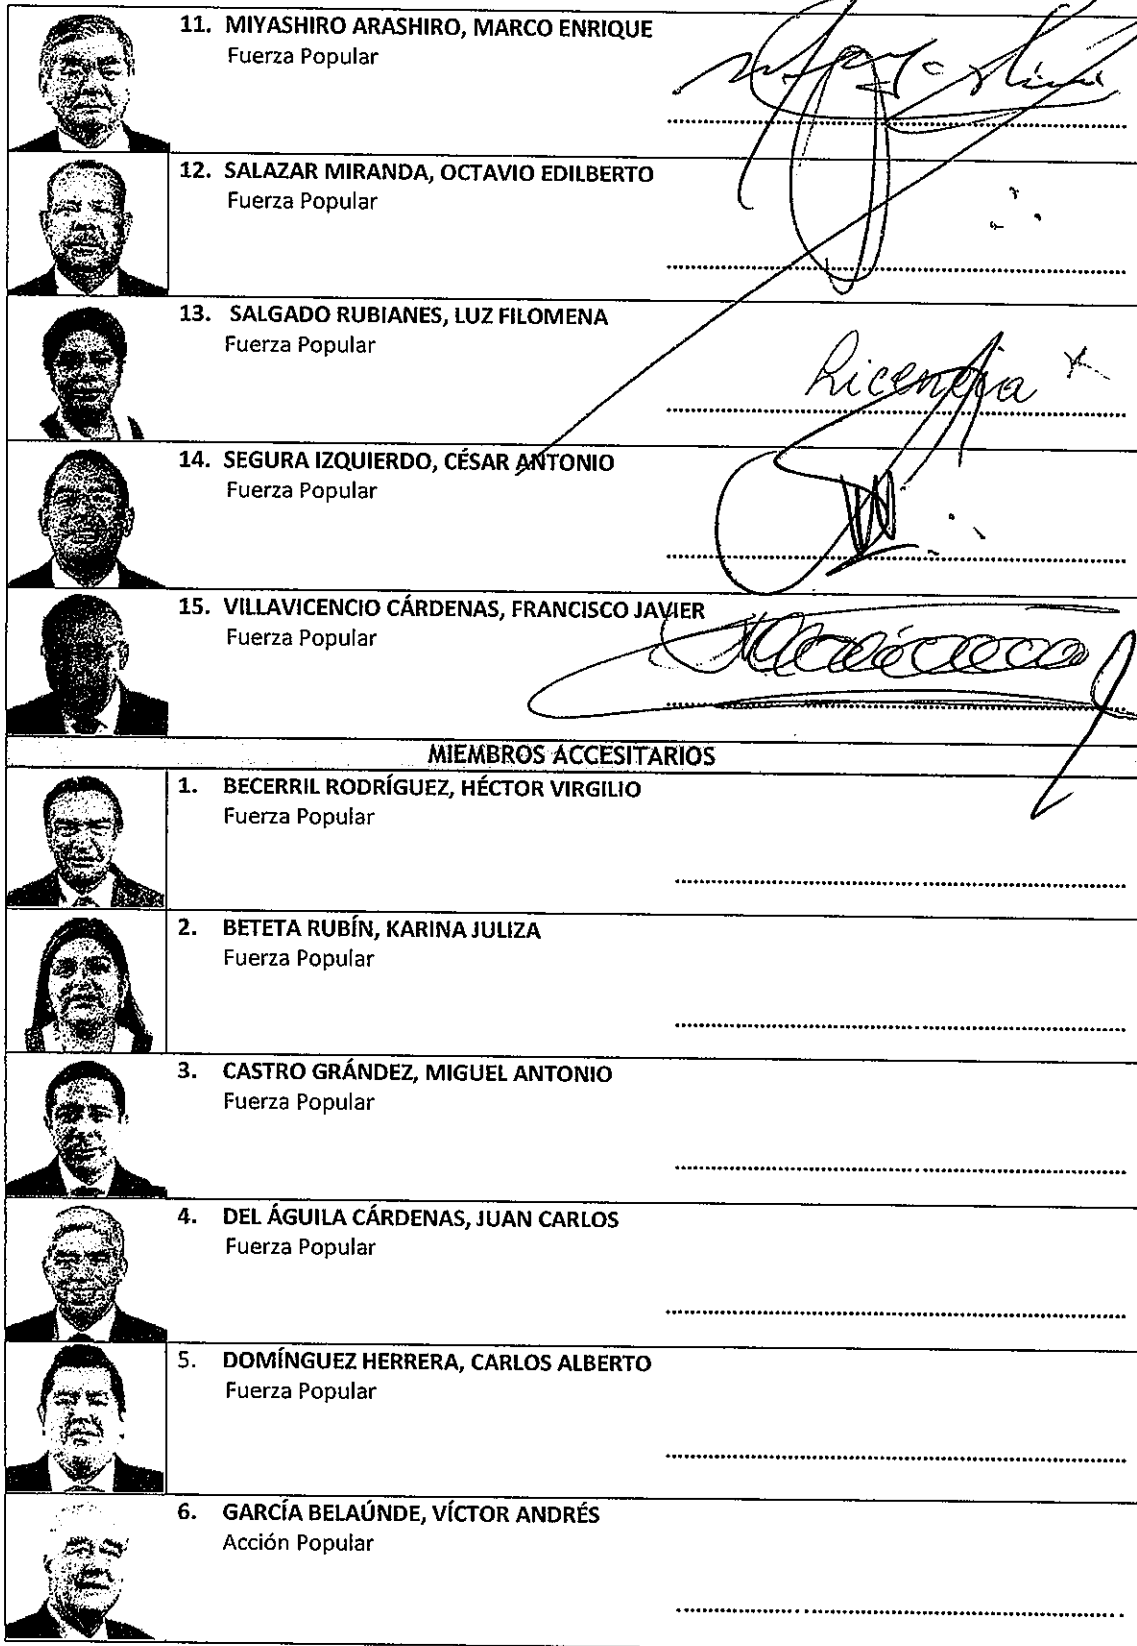 11. MIYASHIRO ARASHIRO, MARCO ENRIQUE
Fuerza Popular
12. SALAZAR MIRANDA, OCTAVIO EDILBERTO
Fuerza Popular
13. SALGADO RUBIANES, LUZ FILOMENA
Fuerza Popular
Licencia
14. SEGURA IZQUIERDO, CÉSAR ANTONIO
Fuerza Popular
15. VILLAVICENCIO CÁRDENAS, FRANCISCO JAVIER
Fuerza Popular
MIEMBROS ACCESITARIOS
1. BECERRIL RODRÍGUEZ, HÉCTOR VIRGILIO
Fuerza Popular
2. BETETA RUBÍN, KARINA JULIZA
Fuerza Popular
3. CASTRO GRÁNDEZ, MIGUEL ANTONIO
Fuerza Popular
4. DEL ÁGUILA CÁRDENAS, JUAN CARLOS
Fuerza Popular
5. DOMÍNGUEZ HERRERA, CARLOS ALBERTO
Fuerza Popular
6. GARCÍA BELAÚNDE, VÍCTOR ANDRÉS
Acción Popular